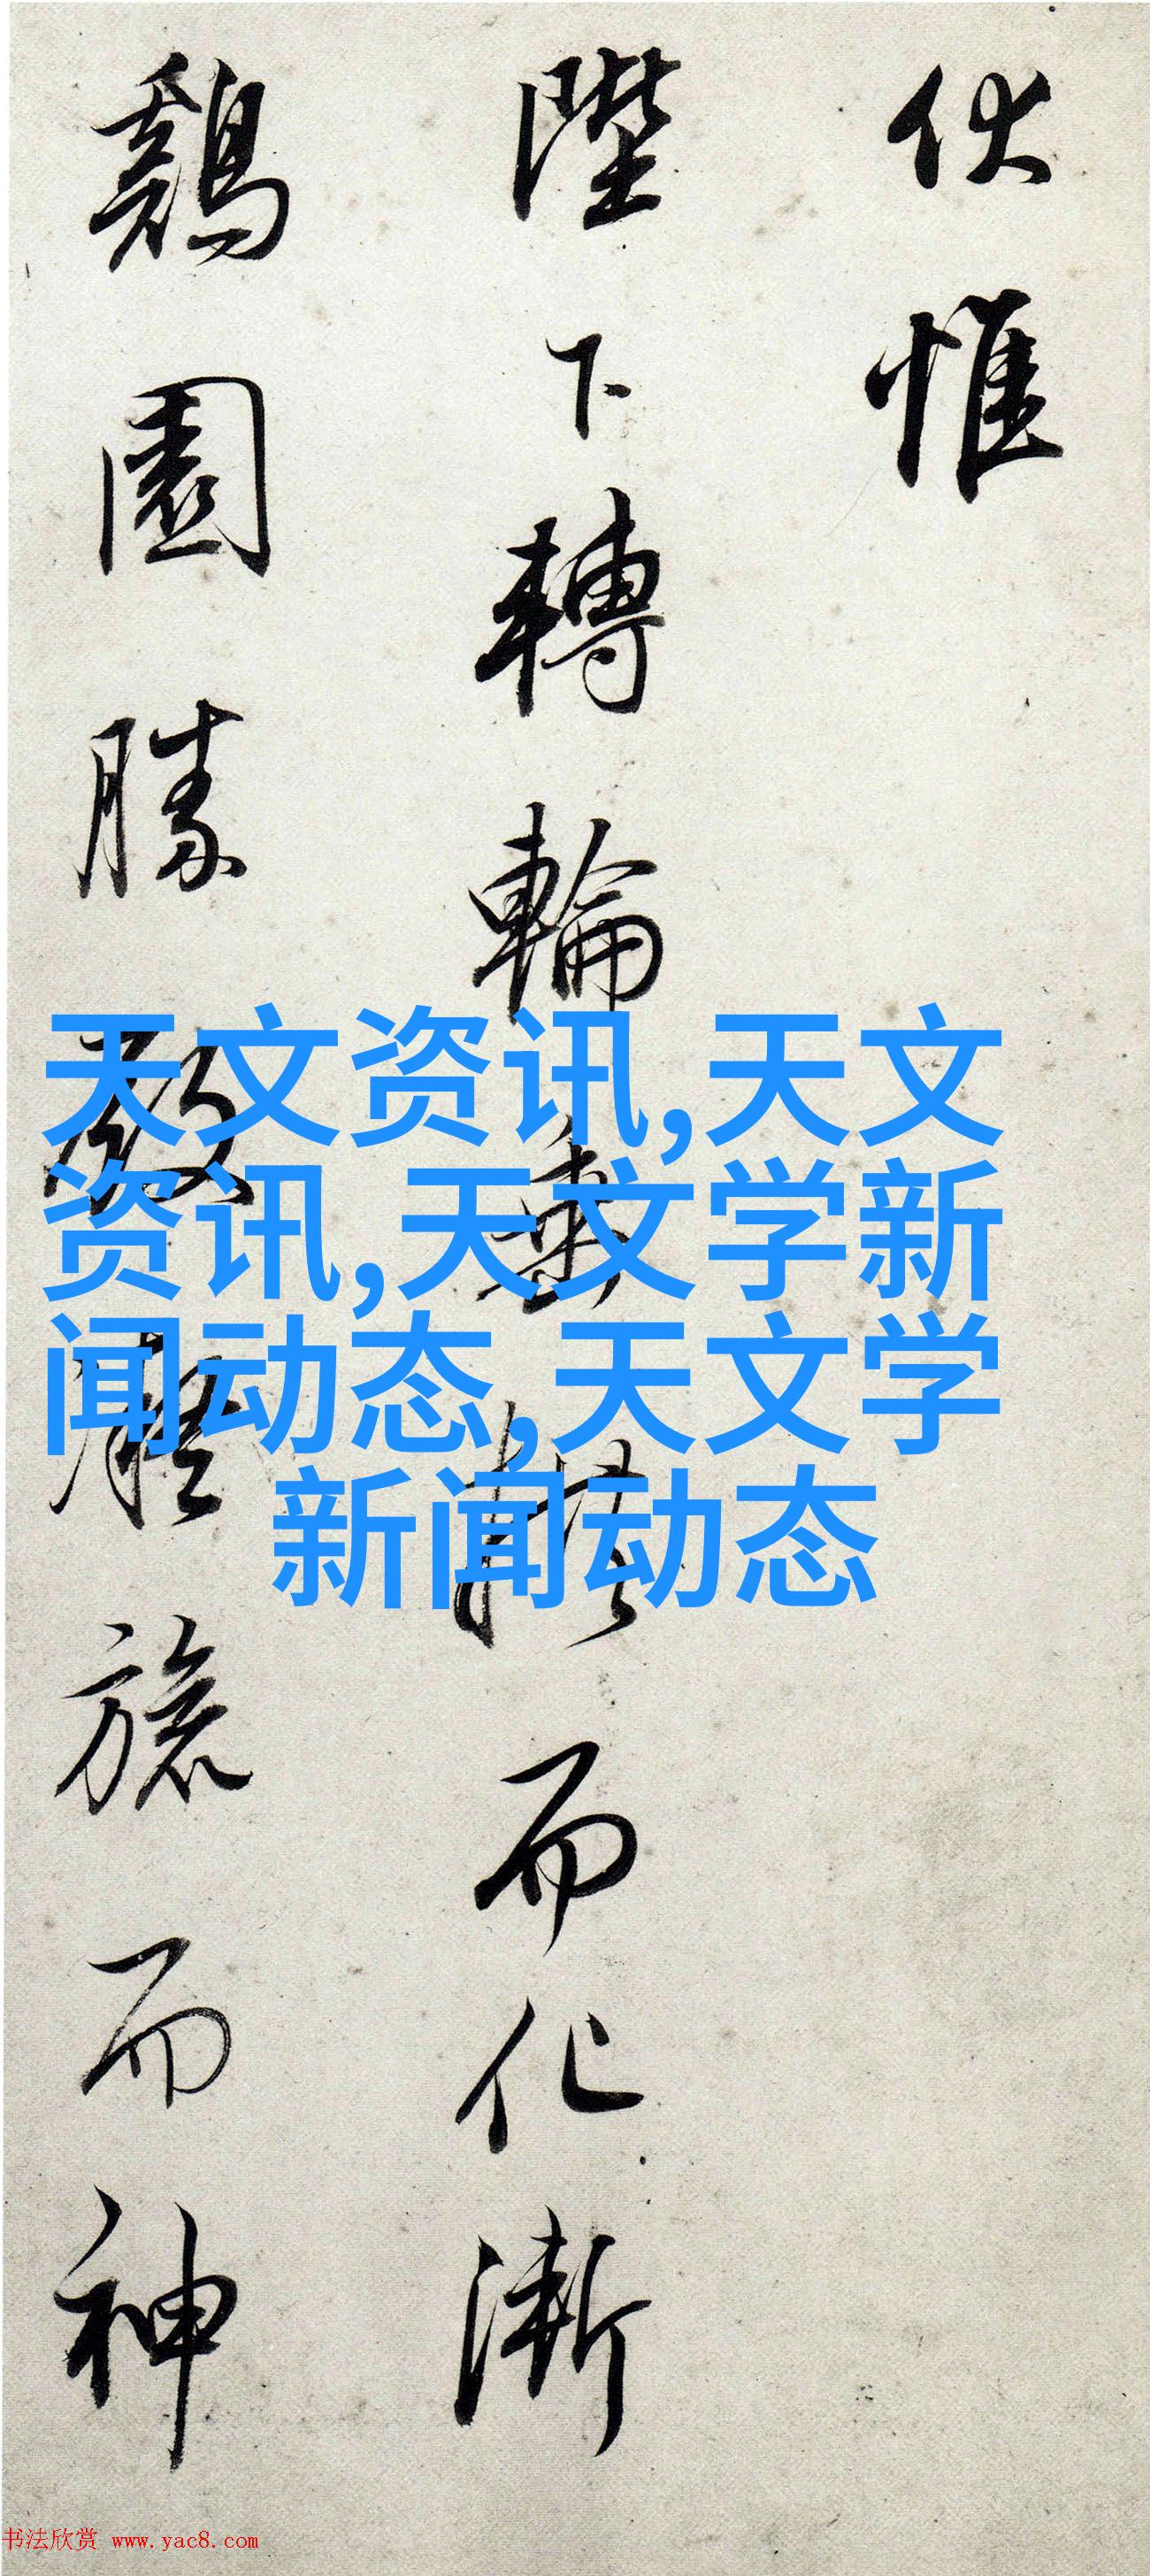 伏惟
陛下轉輪垂拱而化漸
鷄園勝殿廱旒而神
天文资讯,天文
资讯,天文学新
闻动态,天文学
新闻动态
书法欣赏 www.yac8.com